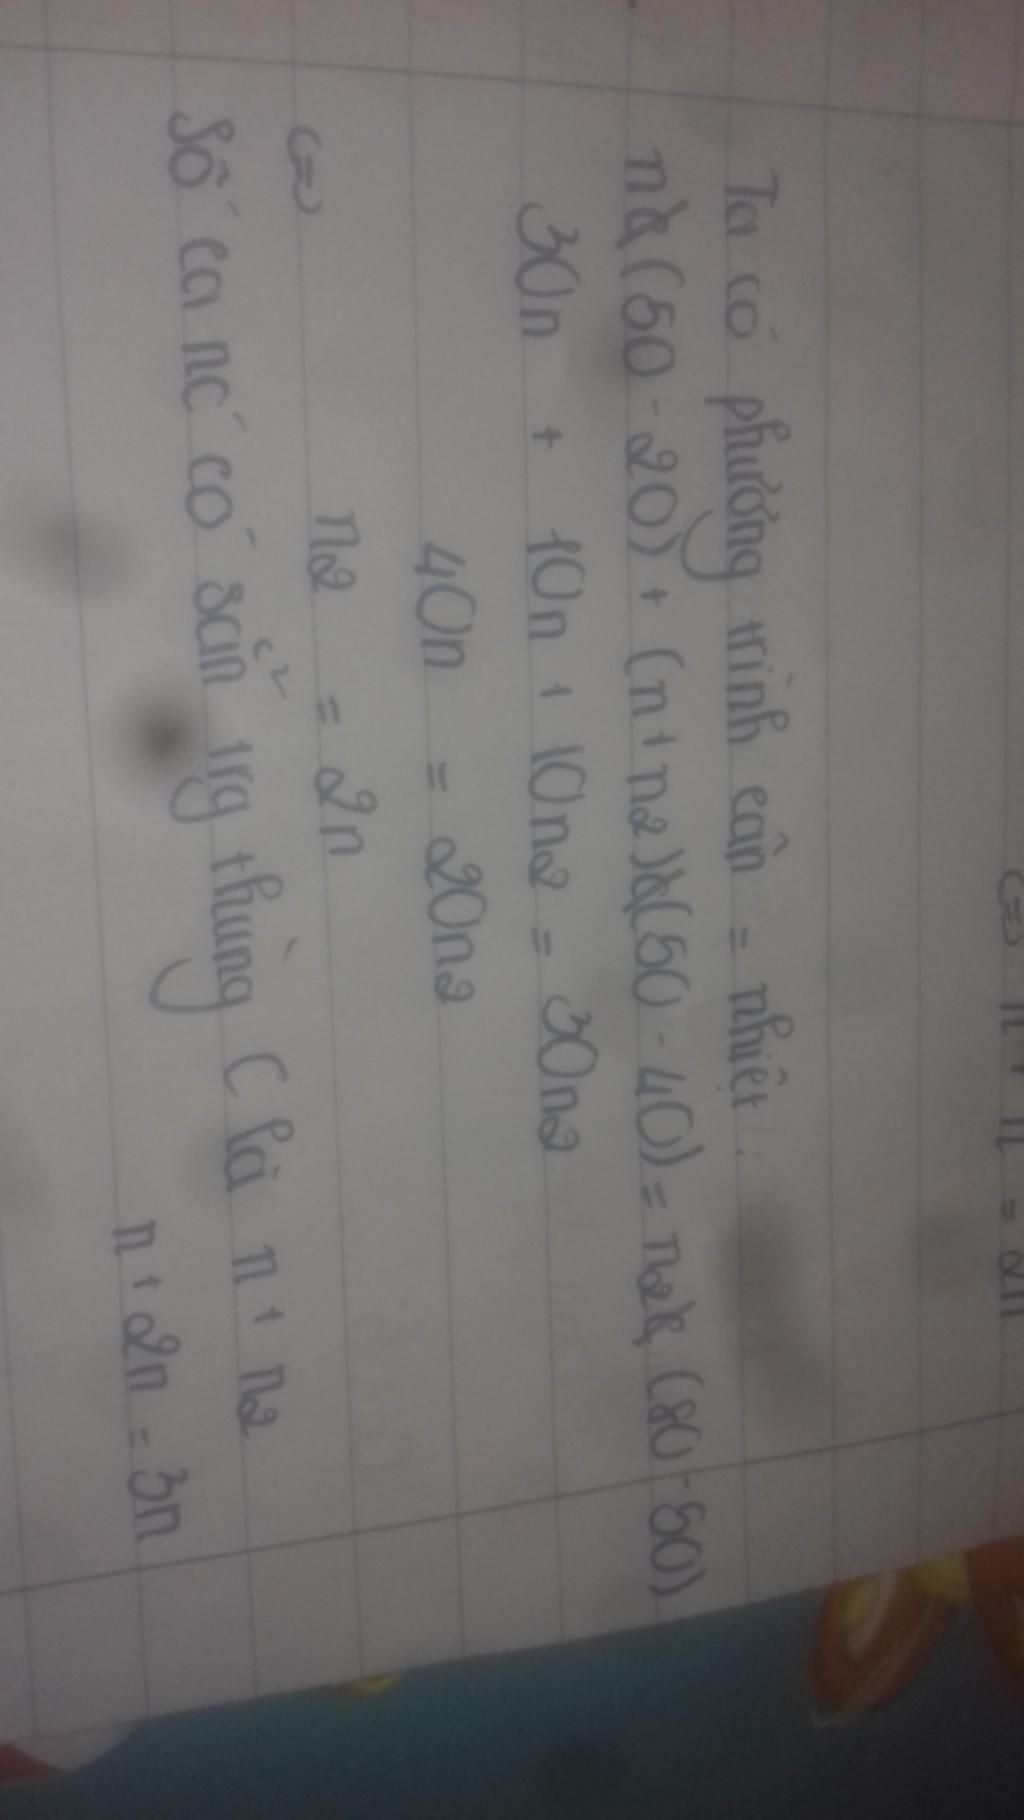 <=> n + n = 2n
Ta có phương trình cân = nhiệt:
n(50 - 20) + (n + n2)(50 - 40) = n2 (80 - 50)
30n + 10n + 10n2 = 30n2
40n = 20n2
<=> n2 = 2n
Số ca nc có sẵn trg thùng C là n + n2
n + 2n = 3n